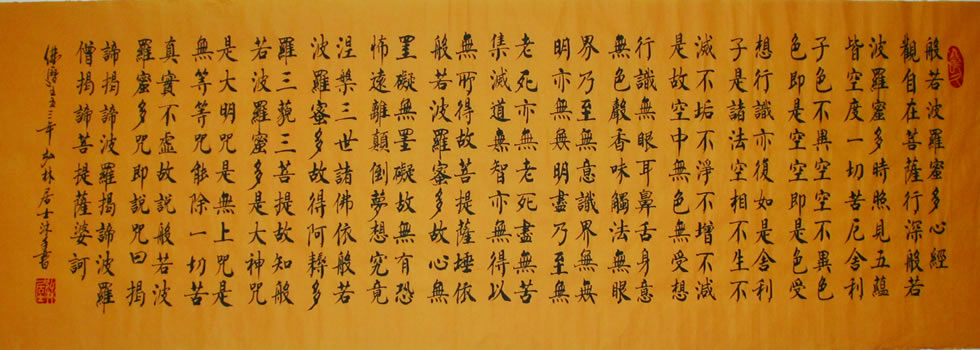 般若波羅蜜多心經
觀自在菩薩行深般若
波羅蜜多時照見五蘊
皆空度一切苦厄舍利
子色不異空空不異色
色即是空空即是色受
想行識亦復如是舍利
子是諸法空相不生不
滅不垢不淨不增不減
是故空中無色無受想
行識無眼耳鼻舌身意
無色聲香味觸法無眼
界乃至無意識界無無
明亦無無明盡乃至無
老死亦無老死盡無苦
集滅道無智亦無得以
無所得故菩提薩埵依
般若波羅蜜多故心無
罣礙無罣礙故無有恐
怖遠離顛倒夢想究竟
涅槃三世諸佛依般若
波羅蜜多故得阿耨多
羅三藐三菩提故知般
若波羅蜜多是大神咒
是大明咒是無上咒是
無等等咒能除一切苦
真實不虛故說般若波
羅蜜多咒即說咒曰揭
諦揭諦波羅揭諦波羅
僧揭諦菩提薩婆訶
佛曆二五五三年林居士沐手書